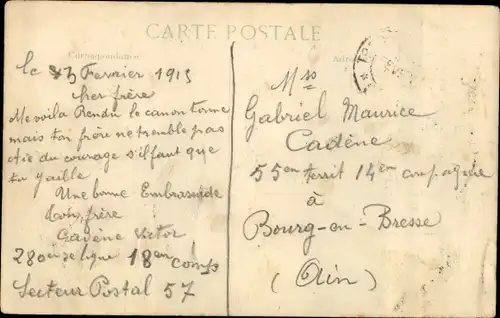 CARTE POSTALE
Correspondance
Le 23 Fevrier 1915
Cher frère
Me voila Rendu le canon tonne
mais ton frère ne tremble pas
Aie du courage s'il faut que
tu y aille
Une bonne Embrassade
ton frère
Cadène Victor
280 de ligne 18em comp
Secteur Postal 57
Mr
Gabriel Maurice
Cadène
55em territ 14em compagnie
à
Bourg-en-Bresse
(Ain)